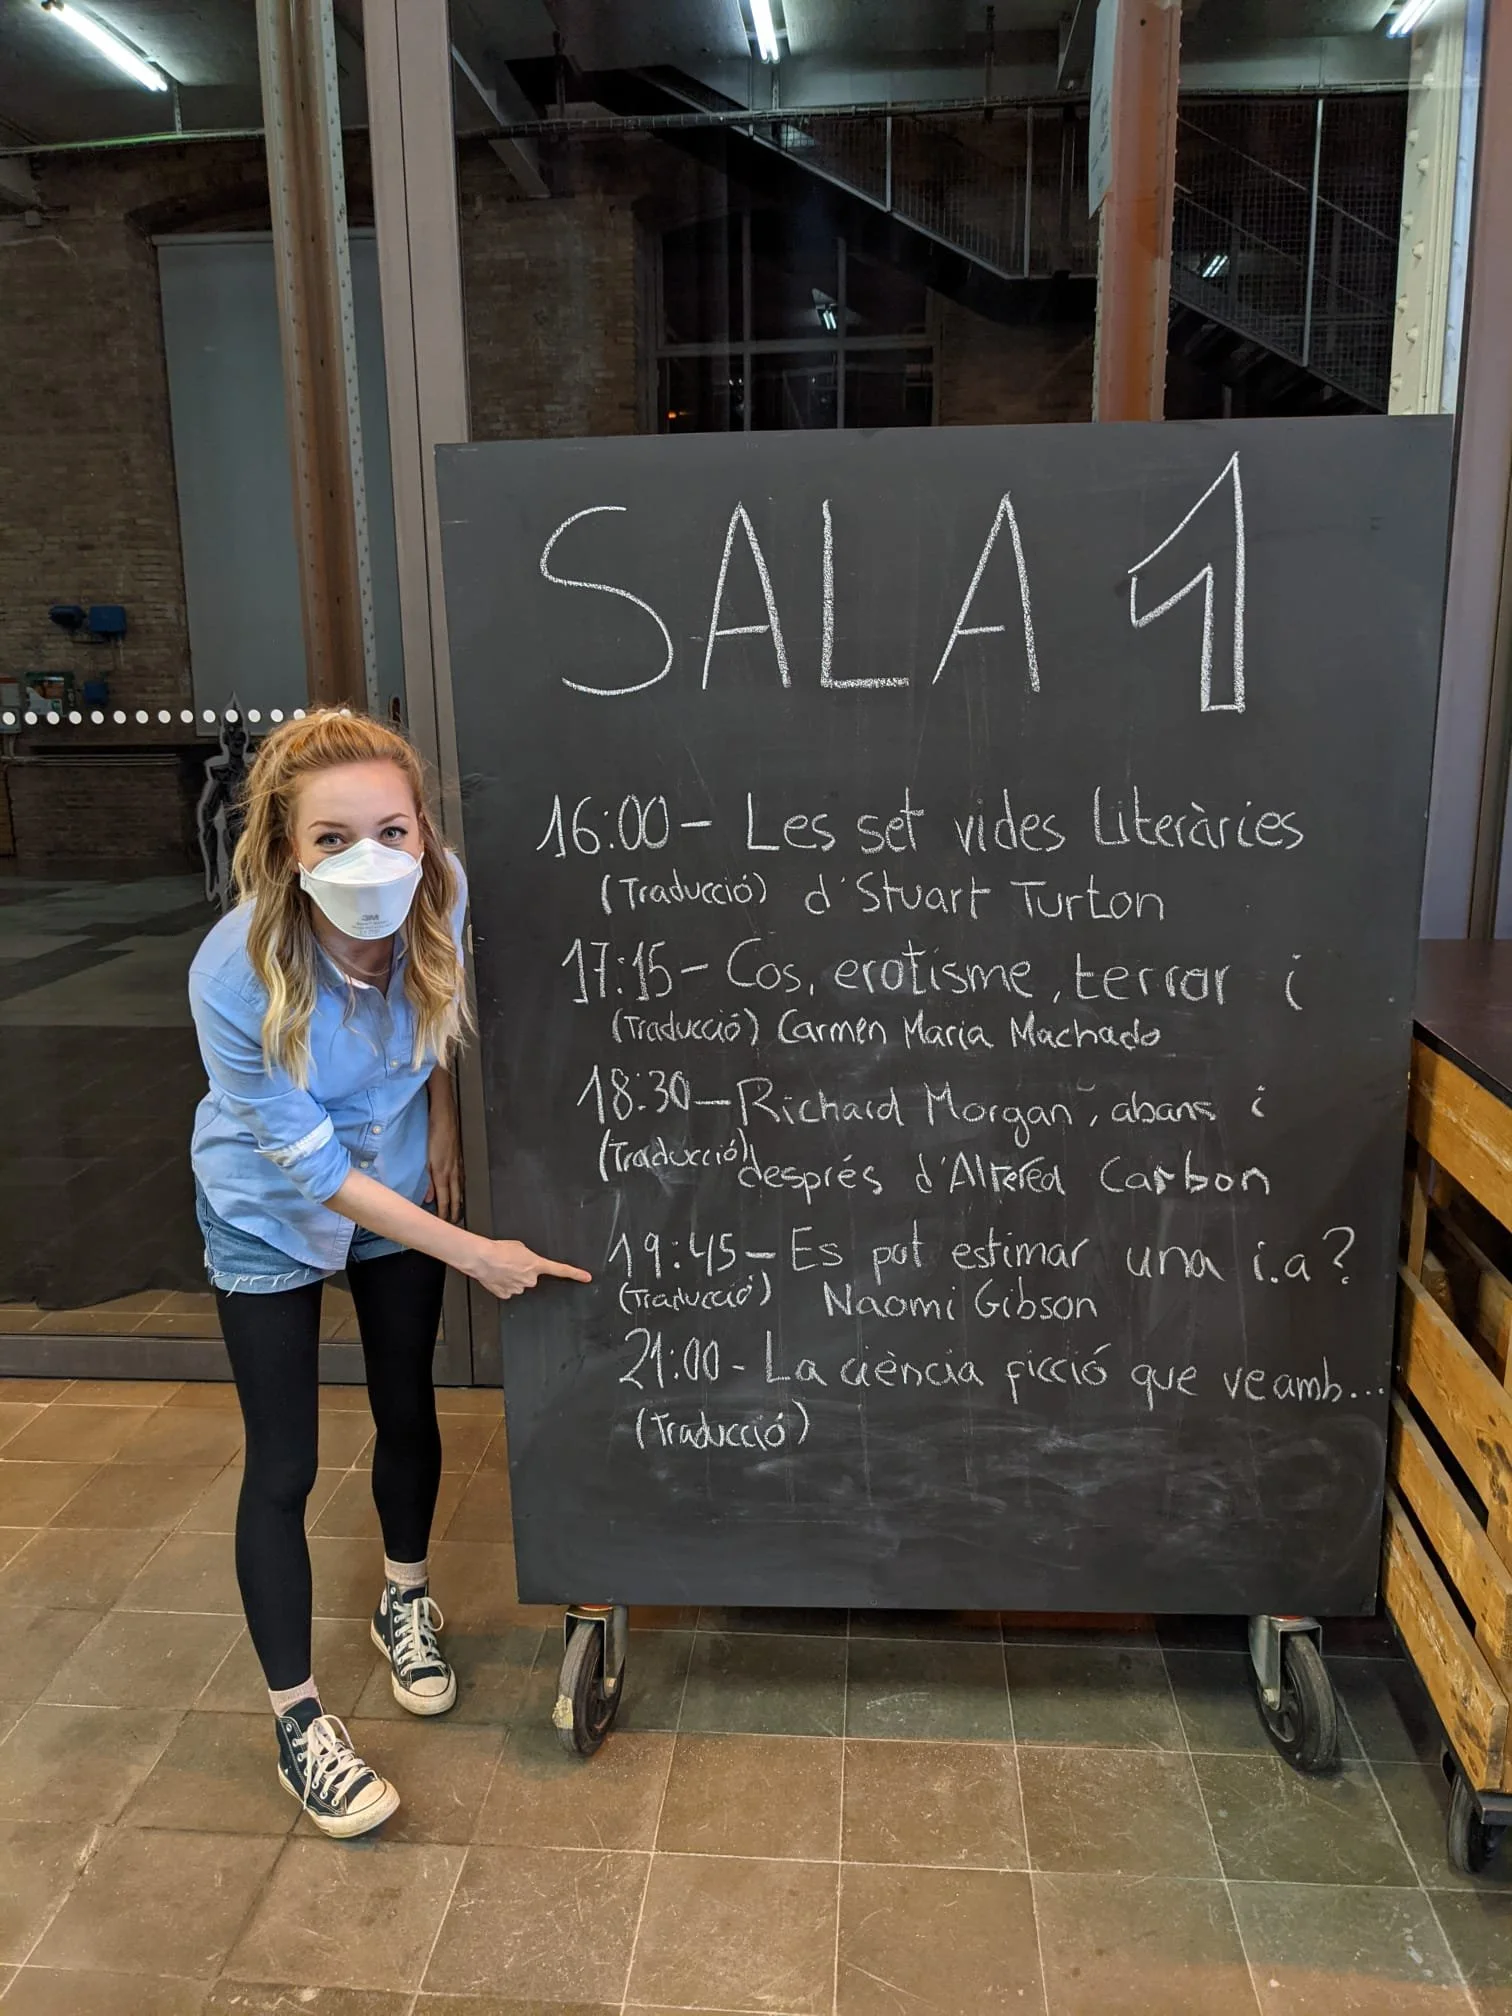 SALA 1
16:00 - Les set vides Literàries
(Traducció) d'Stuart Turton
17:15 - Cos, erotisme, terror i
(Traducció) Carmen Maria Machado
18:30 - Richard Morgan, abans i
(Traducció) després d'Altered Carbon
19:45 - Es pot estimar una i.a?
(Traducció) Naomi Gibson
21:00 - La ciència ficció que ve amb...
(Traducció)
3M